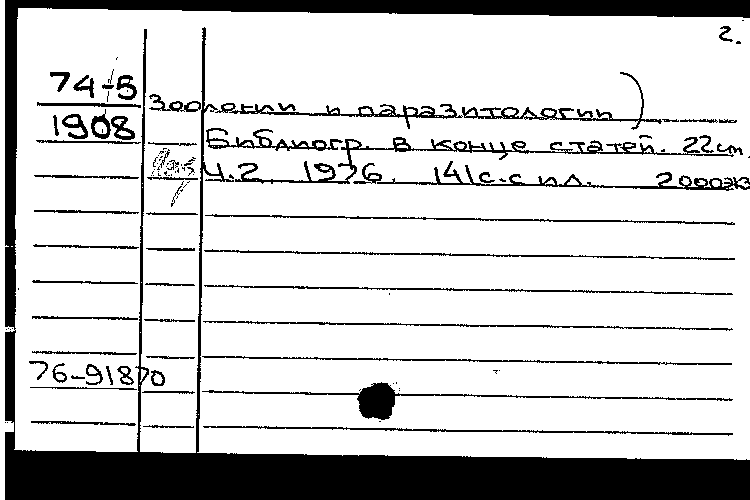 2.
74-5
1908
зоологии и паразитологии)
Библиогр. в конце статей. 22см.
Ч.2 1976. 141с.с ил. 2000эк
76-91870